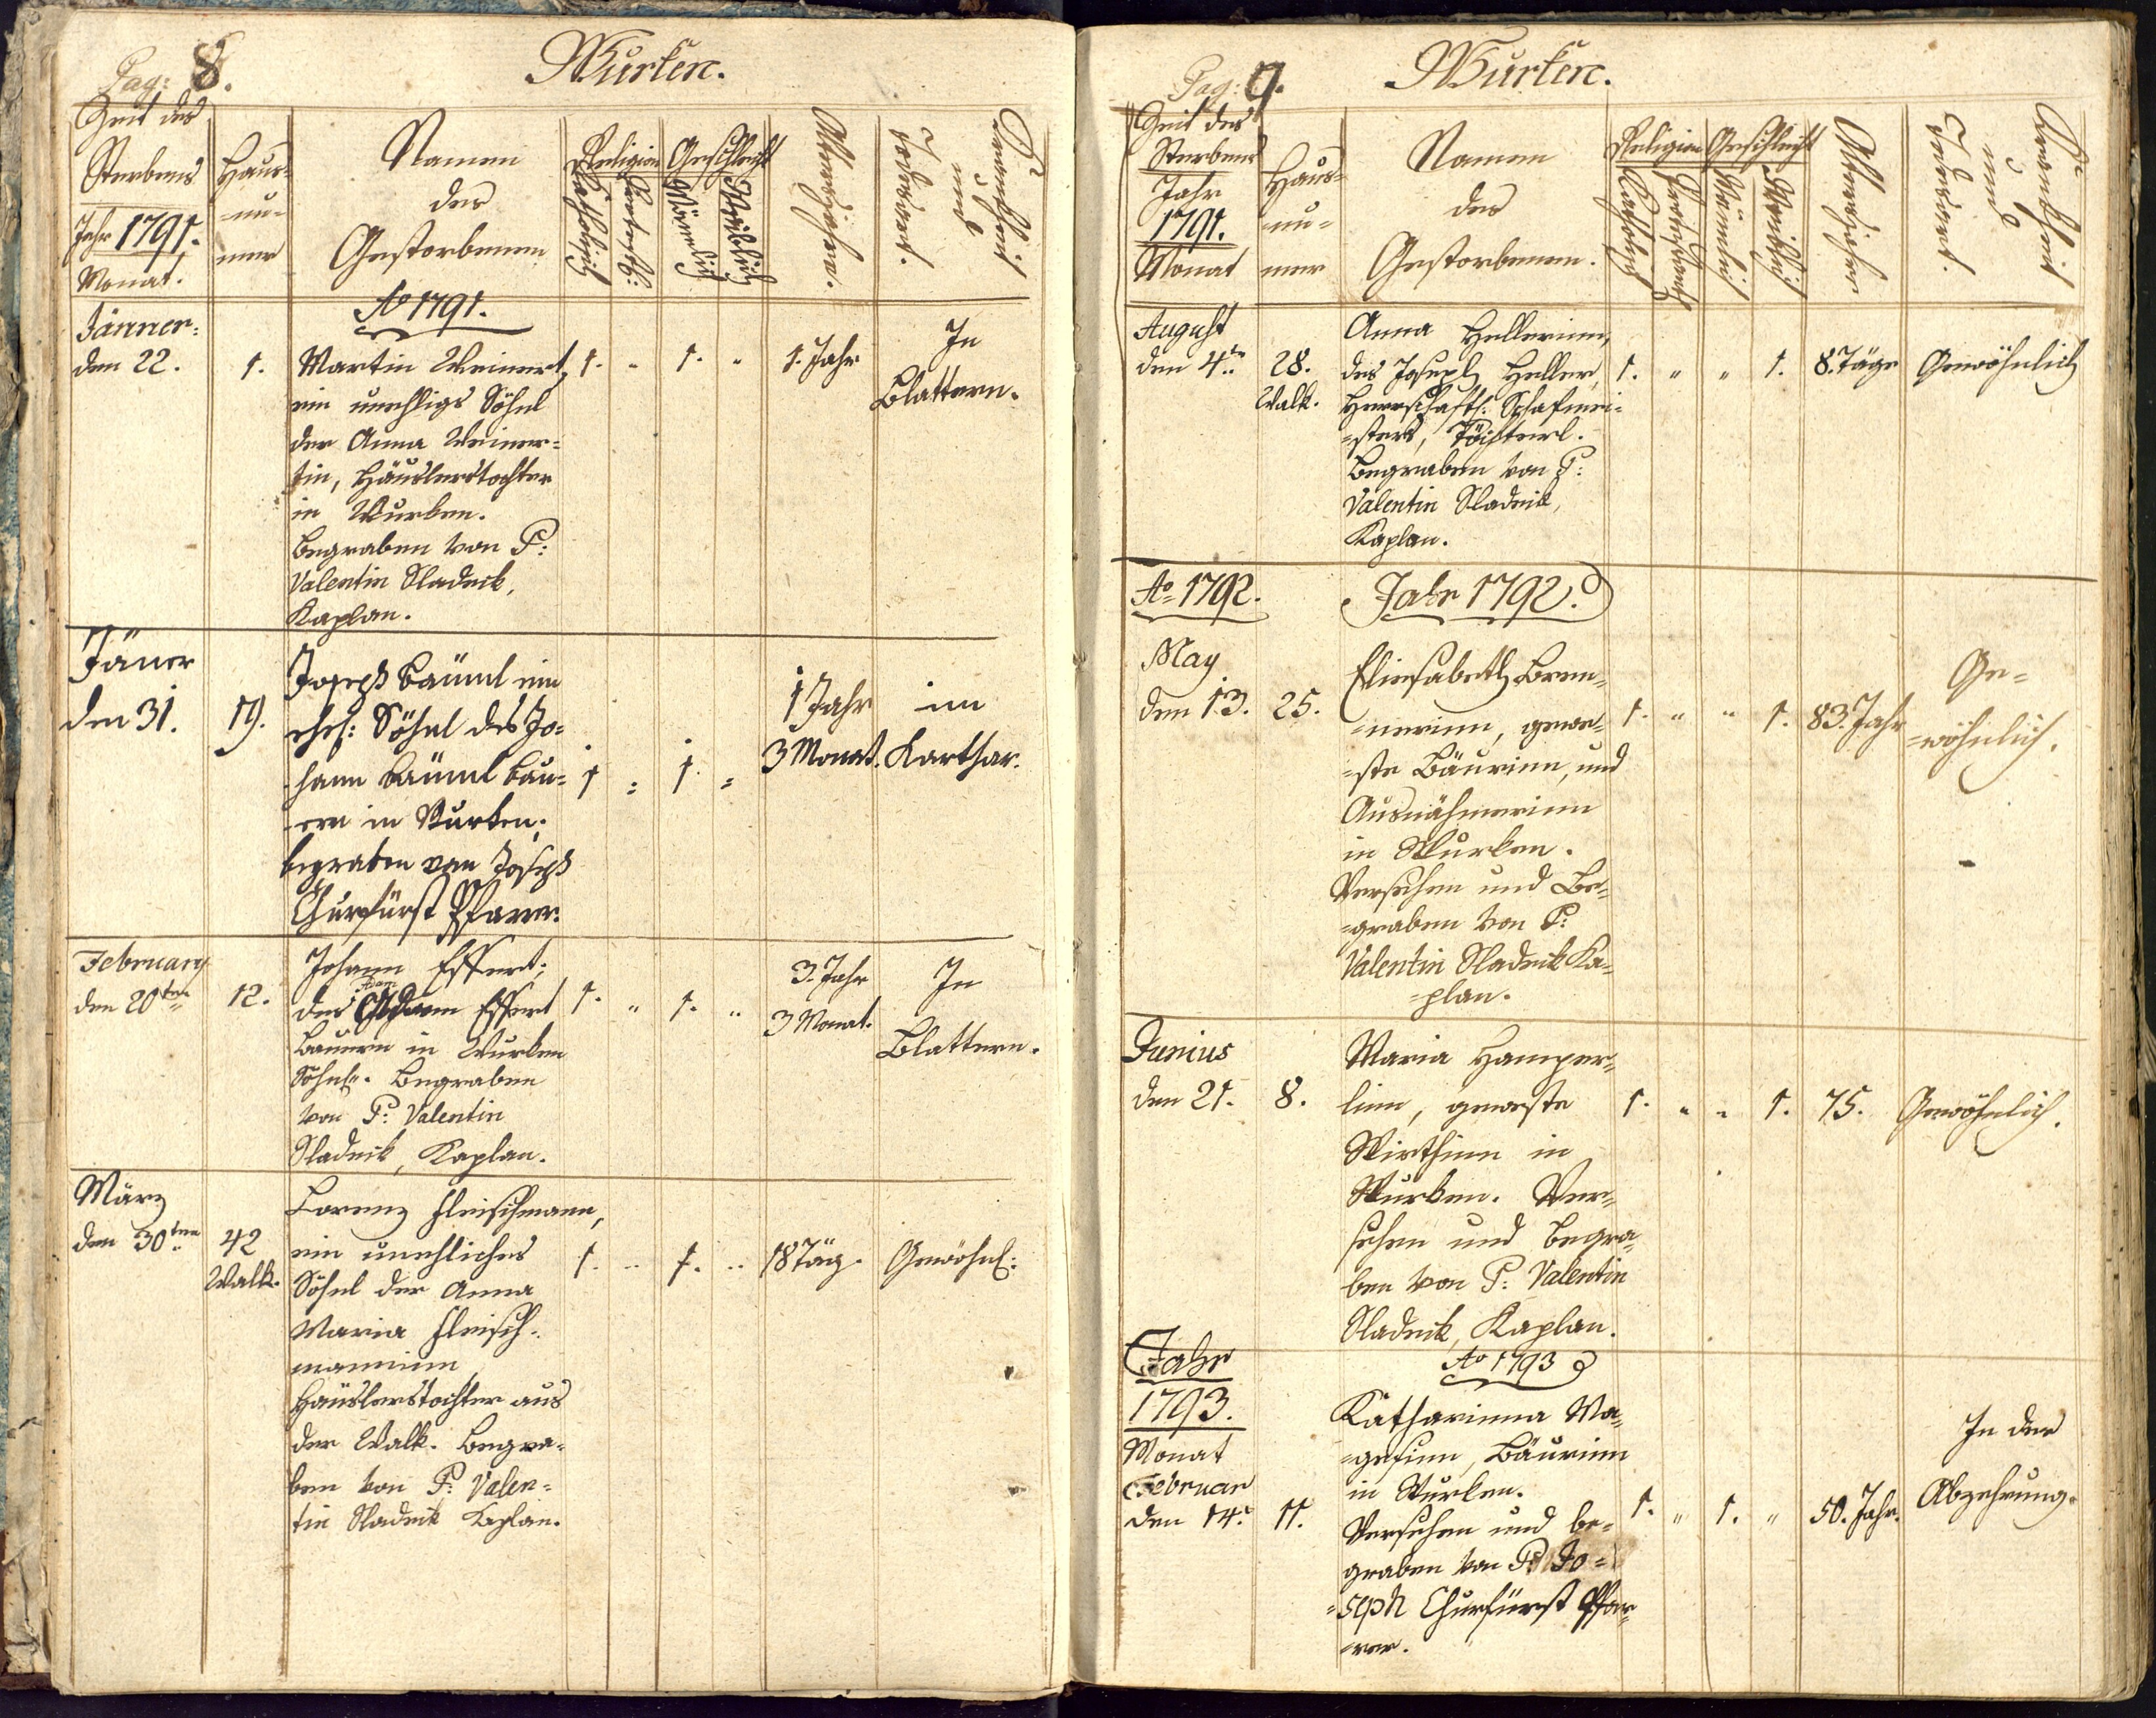 Pag: 8.
Wurken.
Zeit des
Sterbens
Jahr 1791.
Monat.
Haus-
nu-
mer
Namen
der
Gestorbenen
Religion
Katholisch
Protest:
Geschlecht
Männlich
Weiblich
Altersjahre.
Krankheit
und
Todesart.
Ao 1791.
Jänner
den 22.
1.
Martin Weinert,
ein unehligs Söhnl
der Anna Weiner=
tin, Häuslerstochter
in Wurken.
Begraben von P:
Valentin Sladeck,
Kaplan.
1. " 1. "
1. Jahr
In
Blattern.
Jäner
den 31.
19.
Joseph Bäuml ein
ehel: Söhnl des Jo=
hann Bäuml Bau=
ern in Wurken.
begraben von Joseph
Churfürst Pfarrer.
1 = 1 =
1 Jahr
3 Monat.
im
Karthar.
February
den 20ten
12.
Johann Effert;
des Adam Effert
Adam
Bauern in Wurken
Söhnl. Begraben
von P: Valentin
Sladeck, Kaplan.
1. " 1. "
3. Jahr
3 Monat.
In
Blattern.
März
den 30ten
42
Walk.
Lorenz Fleischmann,
ein unehliches
Söhnl der Anna
Maria Fleisch-
mannin
Häuslerstochter aus
der Walk. Begra-
ben von P: Valen-
tin Sladeck Kaplan.
1. " 1. "
18 Täg.
Gewöhnl:
Pag: 9.
Wurken.
Zeit des
Sterbens
Jahr
1791.
Monat
Haus=
nu=
mer
Namen
der
Gestorbenen.
Religion
Katholisch
Protestant
Geschlecht
Männlich
Weiblich
Altersjahre
Krankheit
und
Todesart.
August
den 4ten
28.
Walk.
Anna Hellerinn,
des Joseph Heller,
Herrschaftl: Schafmei=
=sters, Töchterl.
Begraben von P:
Valentin Sladeck,
Kaplan.
1. " " 1.
8. Täge
Gewöhnlich
Ao 1792.
Jahr 1792.
May
den 13.
25.
Eliesabeth Bren=
=nerinn, gewe=
=ste Bäurinn, und
Ausnähmerinn
in Wurken.
Versehen und Be=
=graben von P:
Valentin Sladeck Ka=
=plan.
1. " " 1.
83. Jahr
Ge=
=wöhnlich.
Junius
den 21.
8.
Maria Hamper=
linn, geweste
Wirthinn in
Wurken. Ver=
sehen und Begra=
ben von P: Valentin
Sladeck, Kaplan.
1. " " 1.
75.
Gewöhnlich.
Jahr
1793.
Ao 1793
Monat
Februar
den 14.
11.
Katharinna Ma=
=gesinn, Bäurinn
in Wurken.
Versehen und be=
graben von P: Jo=
=seph Churfürst Pfar=
=rer.
1. " 1. "
50. Jahr.
In der
Abzehrung.